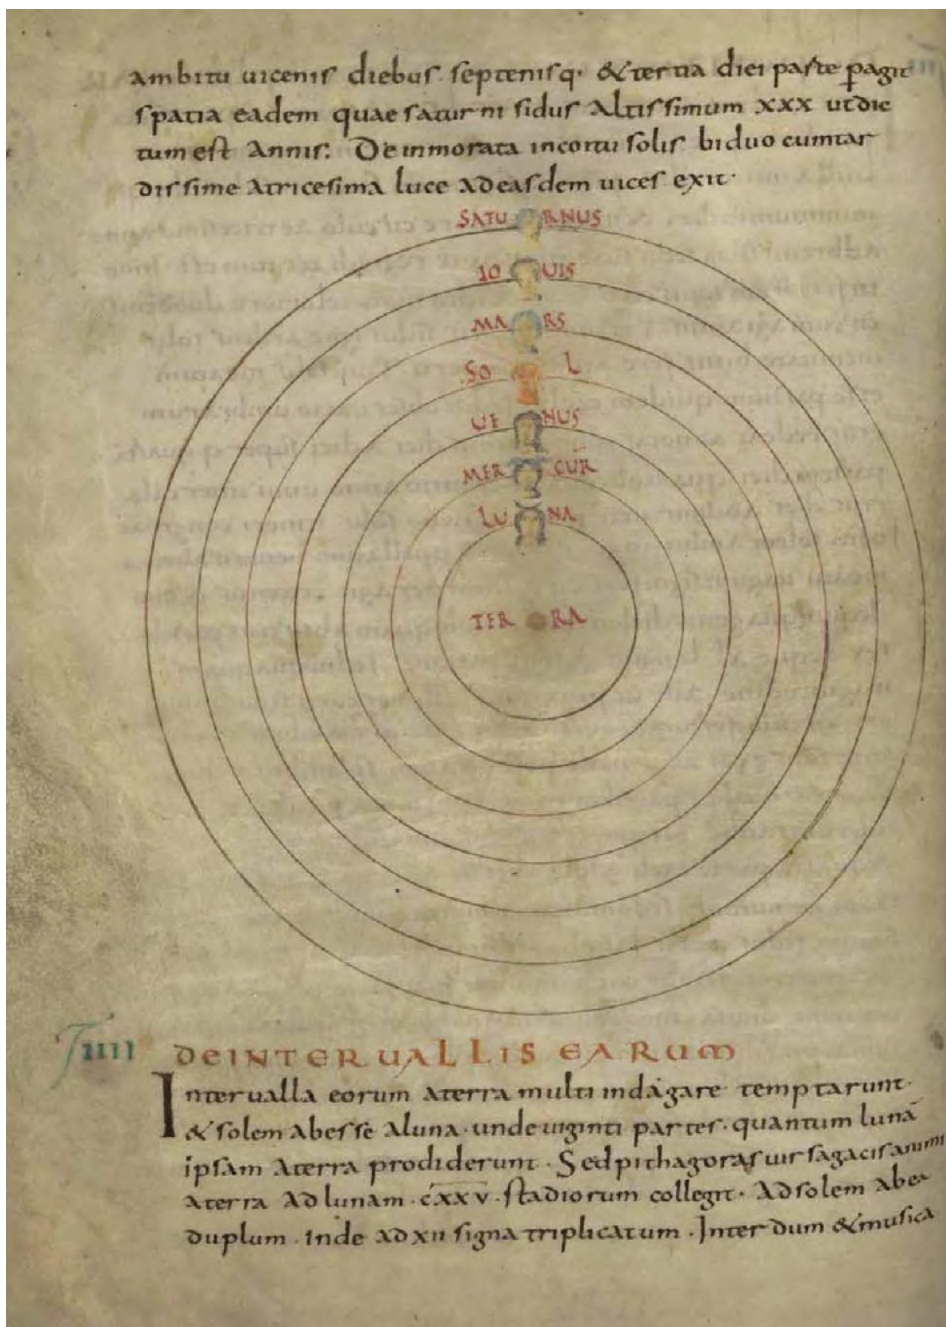 ambitu uicenis diebus septenisq· & tertia diei parte pagit
spatia eadem quae saturni sidus altissimum xxx ut dic
tum est annis: Deinmorata incoitu solis biduo cumtar
dissime atricesima luce adeasdem uices exit·
SATU RNUS
IO UIS
MA RS
SO L
UE NUS
MER CUR
LU NA
TER RA
IIII DEINTERUALLIS EARUM
Interualla eorum aterra multi indagare temptarunt·
& solem abesse aluna· undeuiginti partes· quantum lunā
ipsam aterra prodiderunt· Sed pithagoras uir sagacis animi
aterra ad lunam· cxxv· stadiorum collegit· Ad solem abea
duplum· inde ad xii signa triplicatum· Interdum & musica